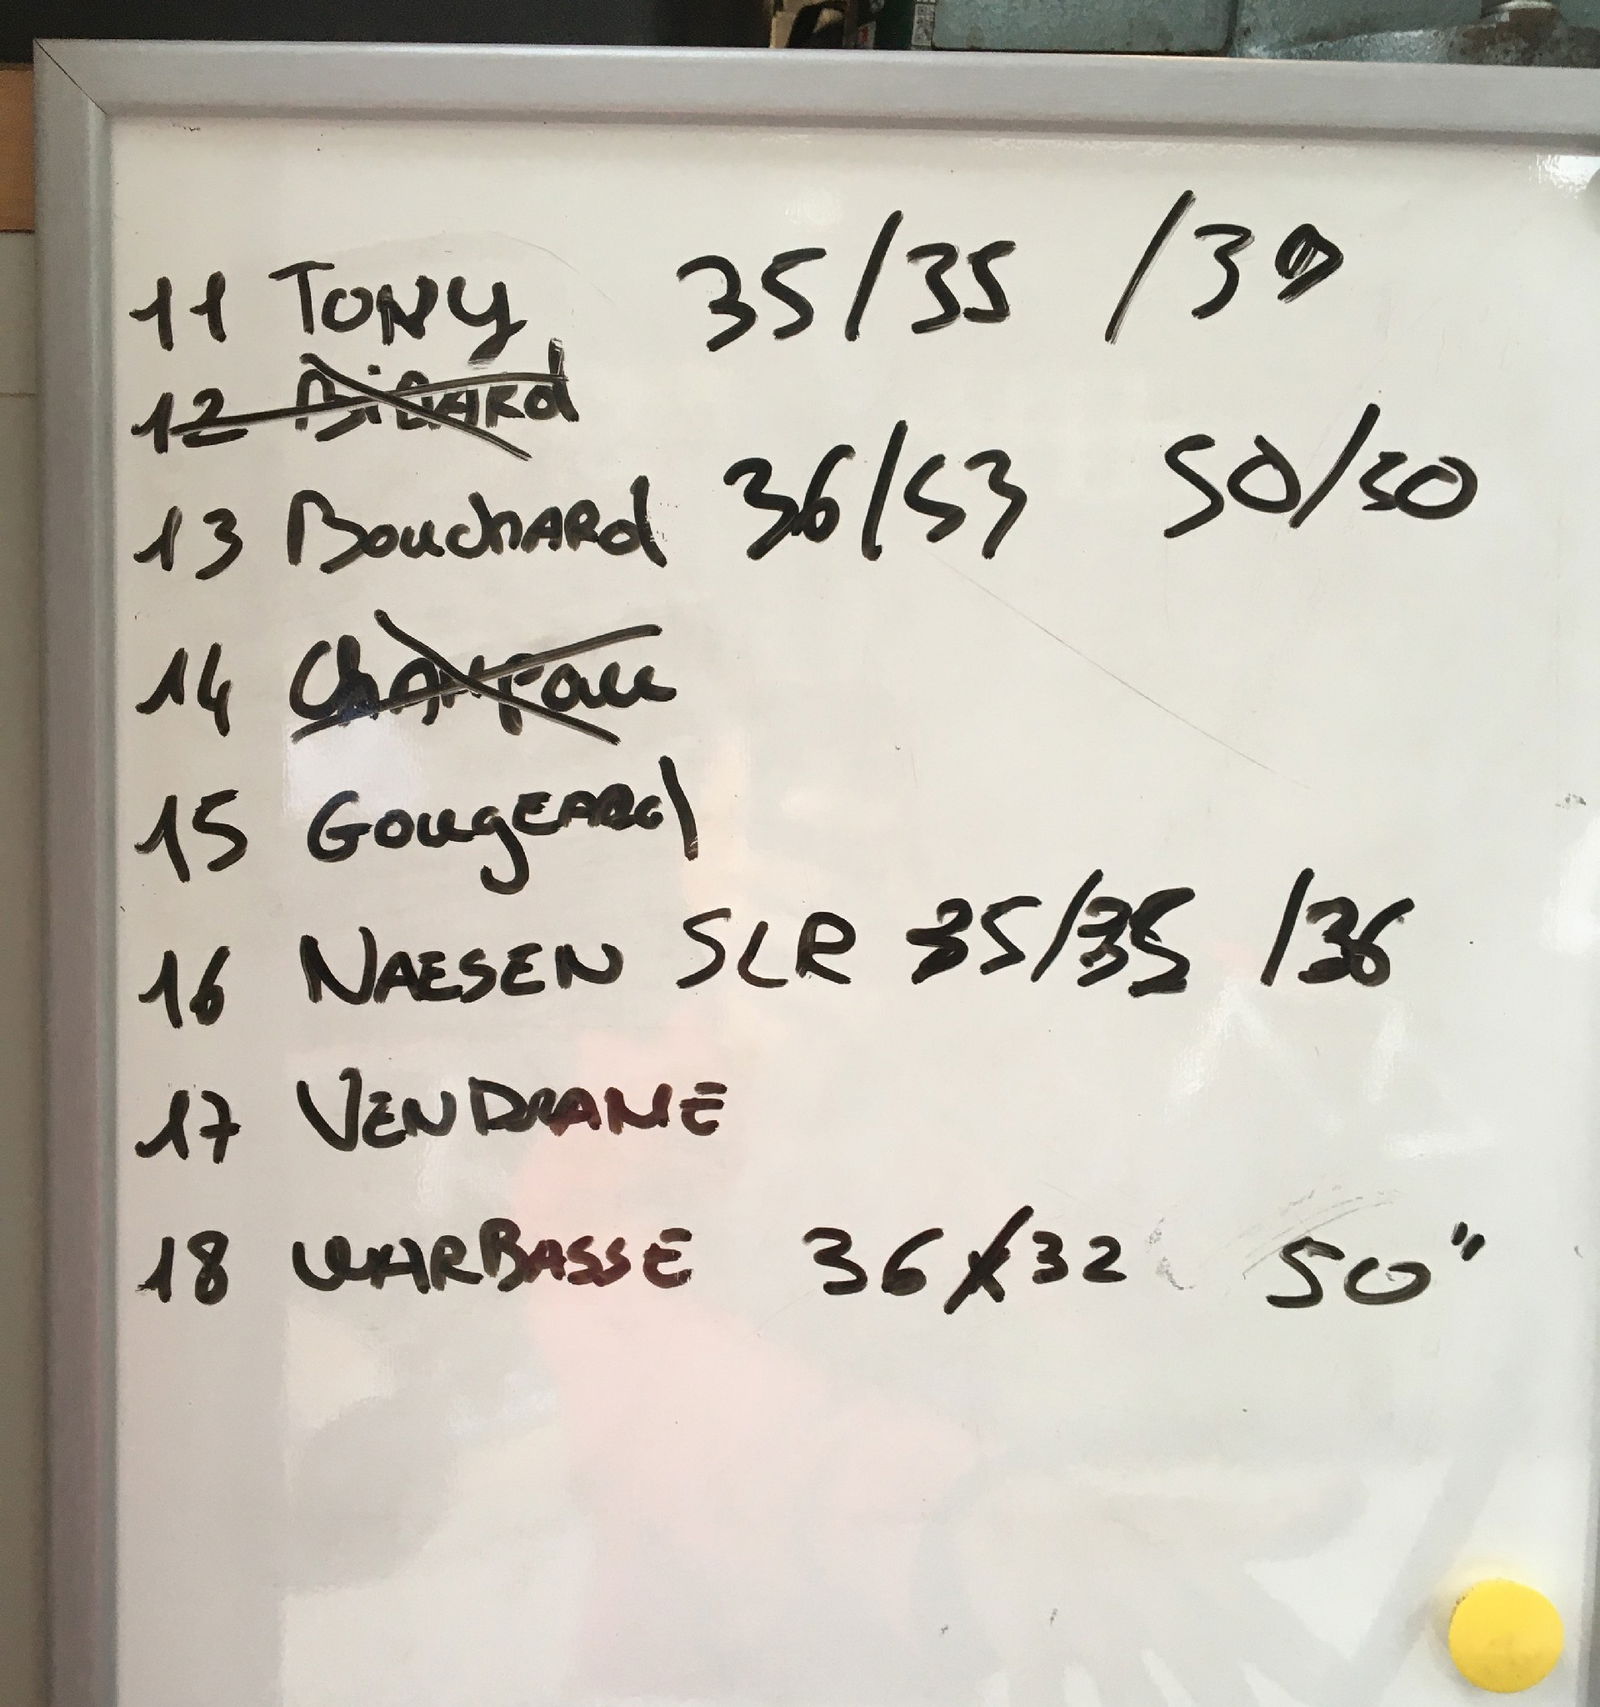 11 TONY 35/35 /39
12 BiDARd
13 BouchARd 36/53 50/50
14 ChAMPOU
15 GougEARd
16 NAESEN SLR 35/35 /36
17 VENDRAME
18 WARBASSE 36/32 50"